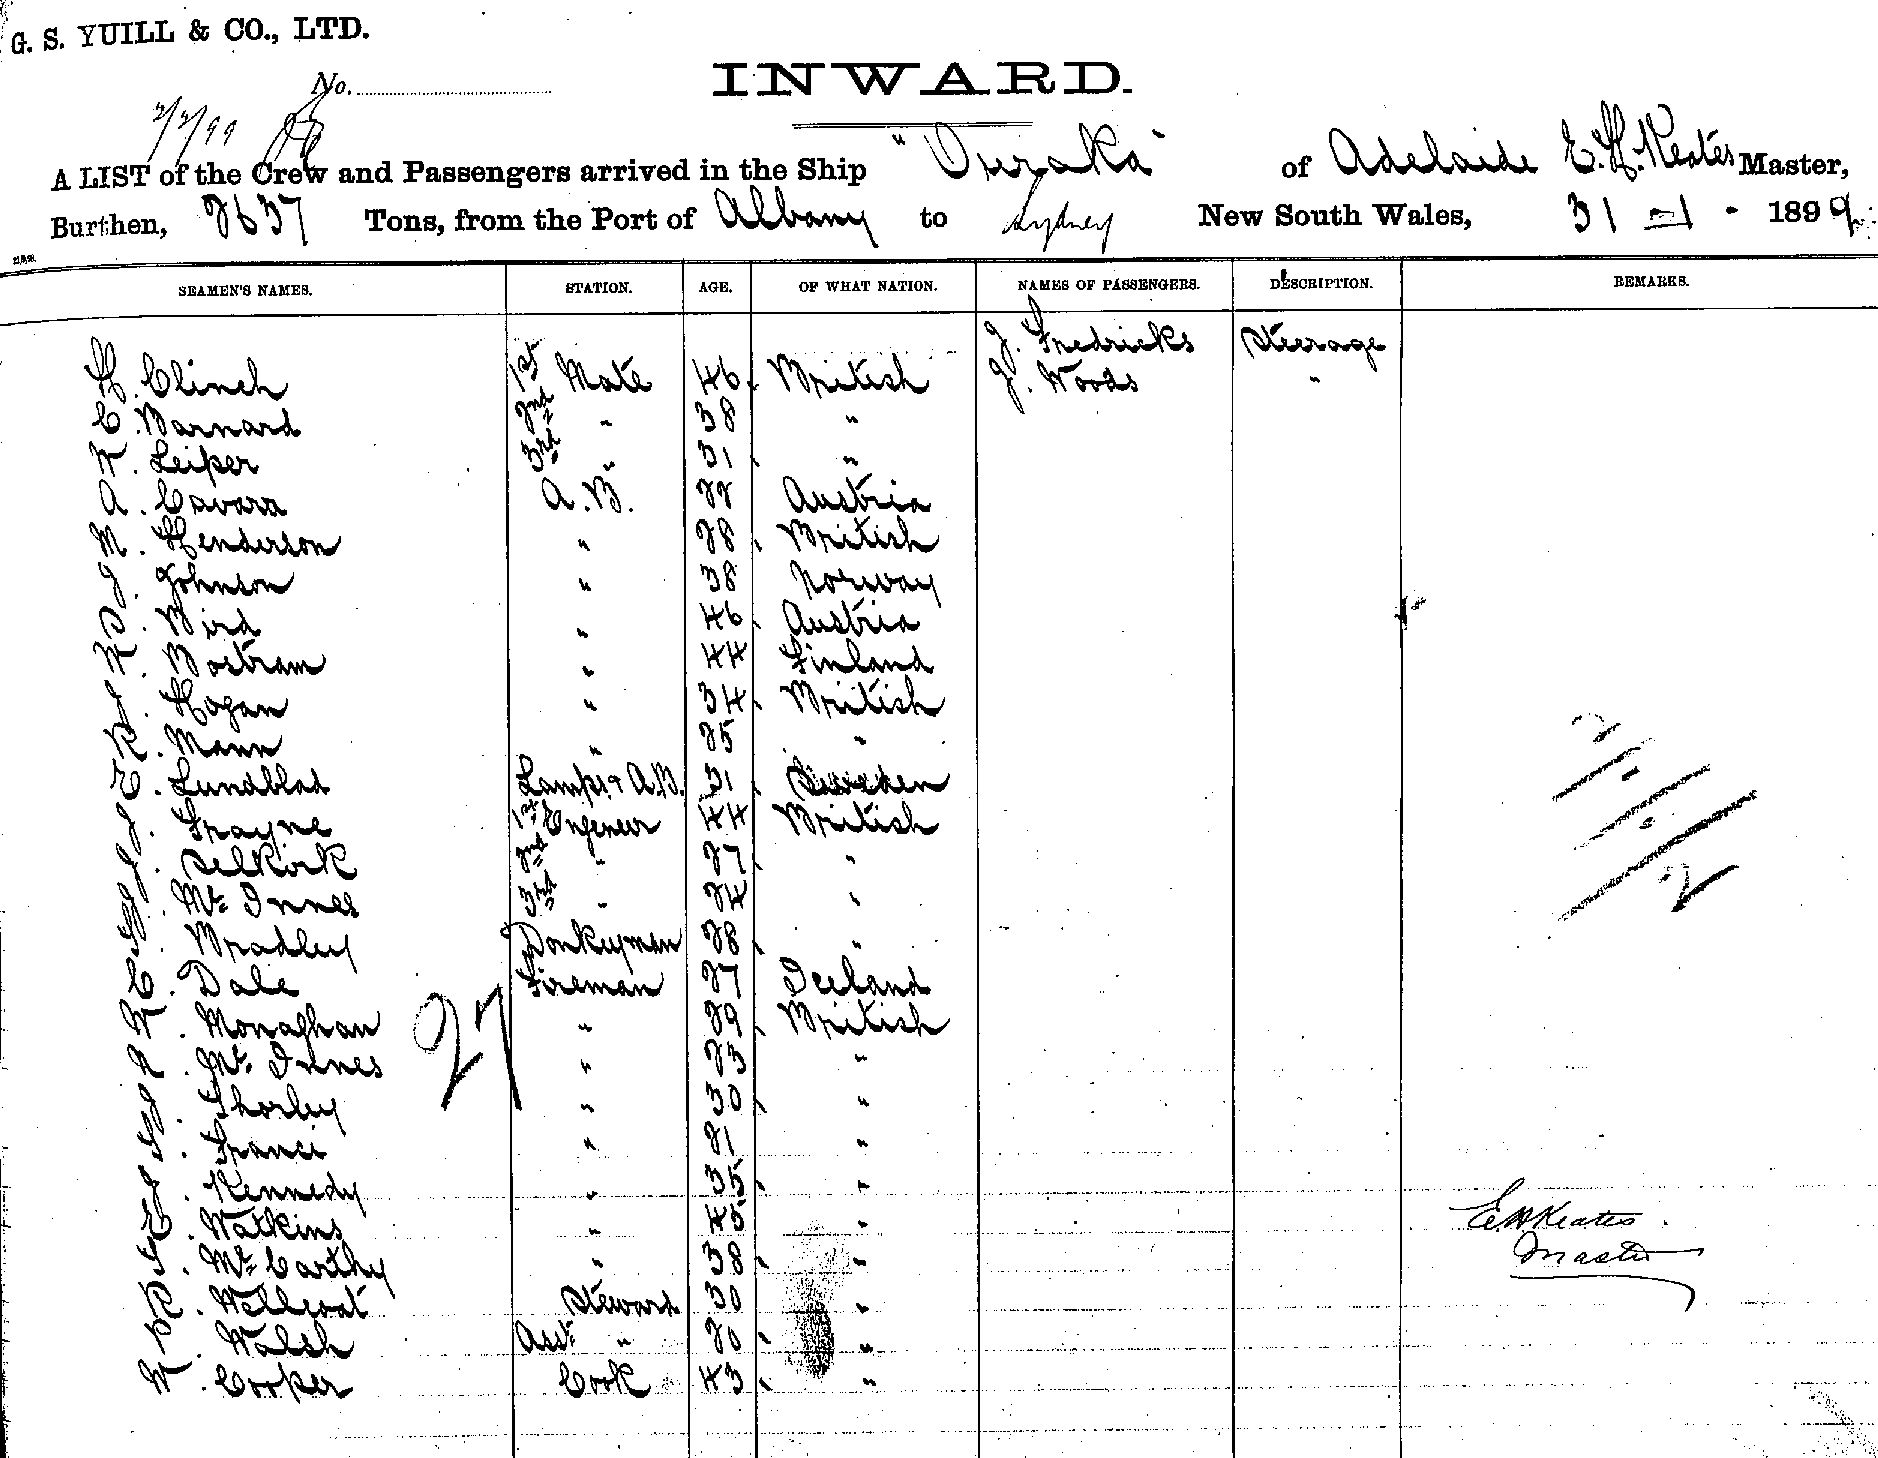 G. S. YUILL & CO., LTD.
No.
INWARD.
2/2/99
A LIST of the Crew and Passengers arrived in the Ship "Ouraka" of Adelaide E. H. Keates Master,
Burthen, 2637 Tons, from the Port of Albany to Sydney New South Wales, 31 - 1 - 1899
SEAMEN'S NAMES. STATION. AGE. OF WHAT NATION. NAMES OF PASSENGERS. DESCRIPTION. REMARKS.
J. Fredricks Steerage
H. Clinch 1st Mate 46 British J. Woods "
C. Barnard 2nd " 38 "
W. Leiper 3rd " 31 "
A. Cavara A.B. 22 Austria
M. Henderson " 28 British
J. Johnson " 38 Norway
D. Bird " 46 Austria
K. Bostram " 44 Finland
J. Hogan " 34 British
R. Mann " 25 "
E. Lundblad Lamps & A.B. 31 Sweden
J. Frayne 1st Engeneer 44 British
J. Selkirk 2nd " 27 "
Mc Innes 3rd " 24 "
Bradley Donkeyman 28 "
C. Dale Fireman 27 Iceland
W. Monaghan " 29 British
Mc Innes " 23 "
27
Shorley " 30 "
Franci " 21 "
J. Kennedy " 35 "
E. Watkins " 45 "
Mc Carthy " 38 "
R. Wellcoat Steward 30 "
Walsh Asst " 20 "
W. Cooper Cook 43 "
E H Keates
Master